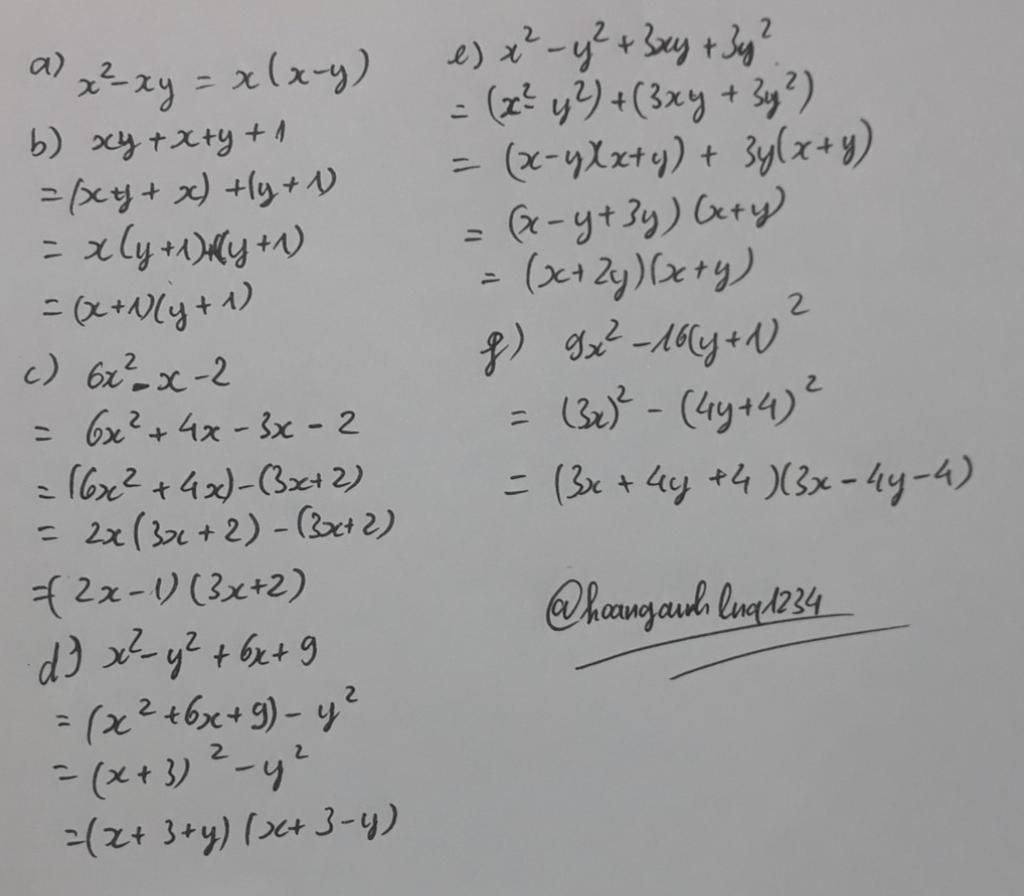 a) x² - xy = x(x-y)
b) xy + x + y + 1
= (xy + x) + (y + 1)
= x(y+1)+(y+1)
= (x+1)(y+1)
c) 6x² - x - 2
= 6x² + 4x - 3x - 2
= (6x² + 4x) - (3x+2)
= 2x(3x+2) - (3x+2)
=(2x-1)(3x+2)
d) x² - y² + 6x + 9
= (x² + 6x + 9) - y²
= (x+3)² - y²
= (x+3+y)(x+3-y)
e) x² - y² + 3xy + 3y²
= (x² - y²) + (3xy + 3y²)
= (x-y)(x+y) + 3y(x+y)
= (x-y+3y)(x+y)
= (x+2y)(x+y)
f) 9x² - 16(y+1)²
= (3x)² - (4y+4)²
= (3x + 4y + 4)(3x - 4y - 4)
@hoanganhlnq1234